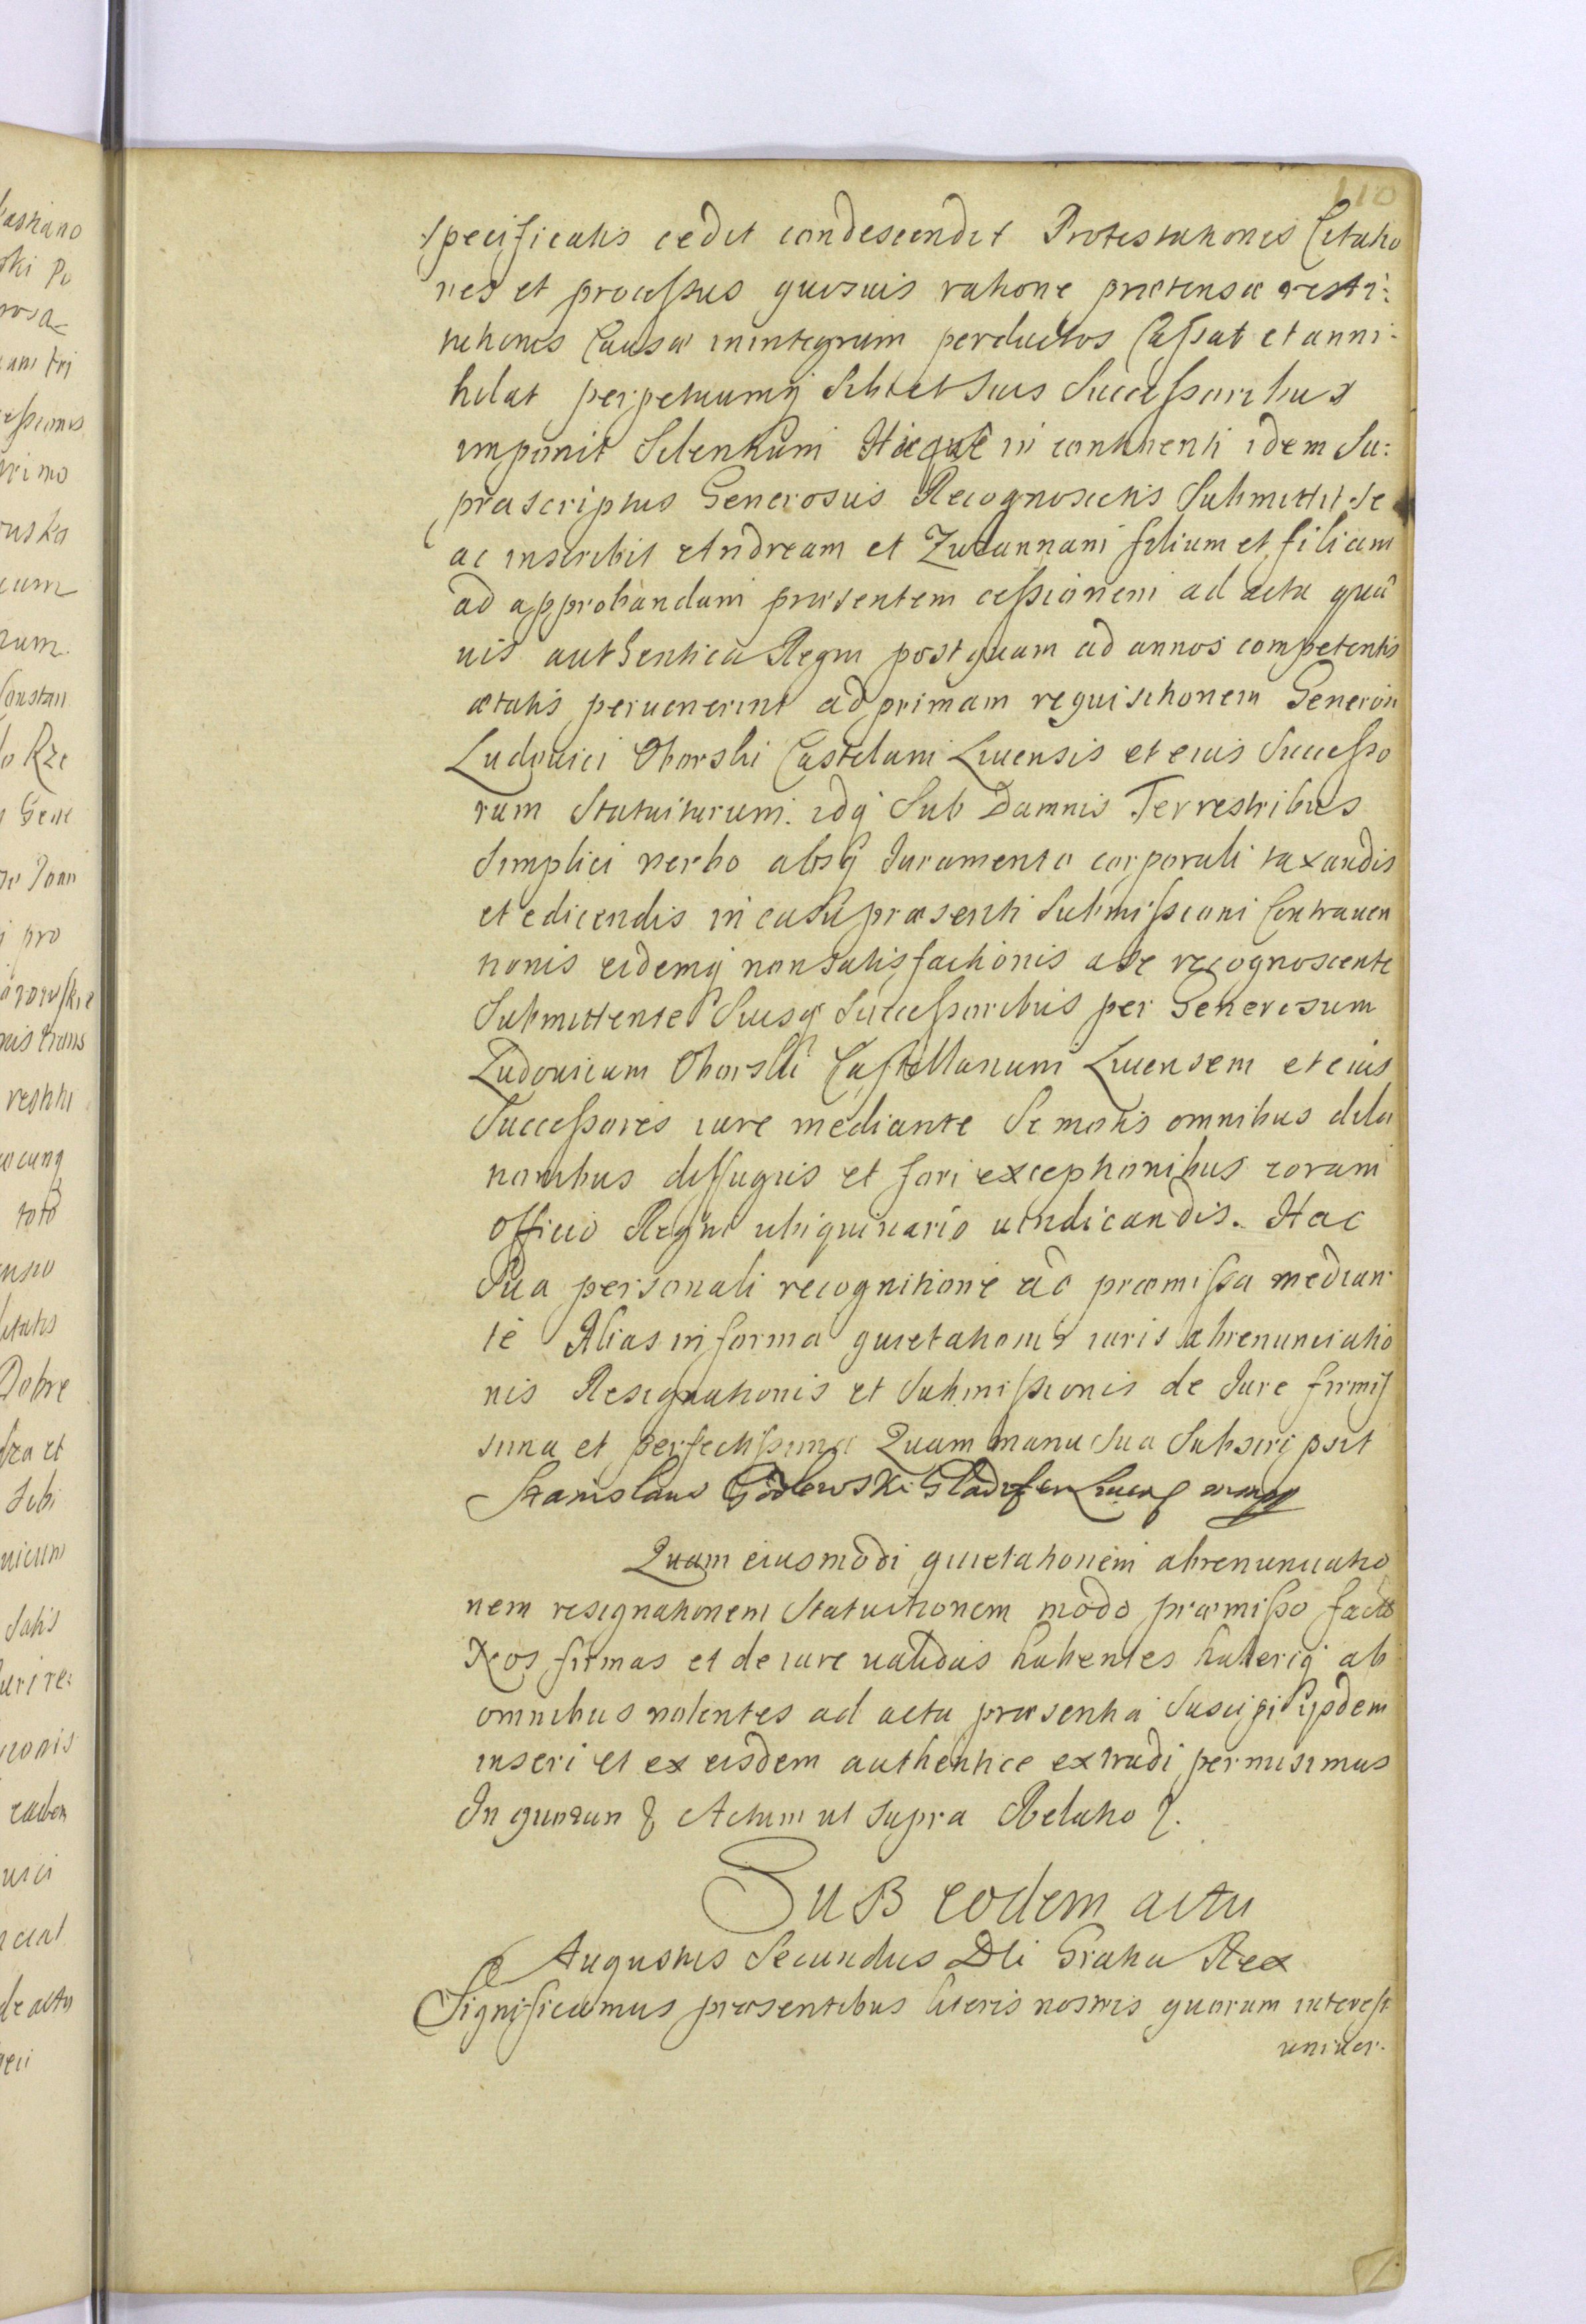 110
specificatis cedit condescendit Protestationes Citatio
nes et processus quosuis ratione prætensæ resti:
tutionis Causæ inintegrum perductos Cassat et anni-
hilat perpetuumq Sibi et Suis Successoribus
imponit Silentium Hicque in continenti idem Su:
præscriptus Generosus Recognoscens Submittit se
ac inscribit Andream et Zuzannam filium et filiam
ad approbandam præsentem cessionem ad acta quæ
uis authentica Regni postquam ad annos competentis
ætatis peruenerint ad primam requisitionem Generosi
Ludouici Oborski Castelani Liuensis et eius Successo
rum Statuiturum. idq Sub Damnis Terrestribus
Simplici verbo absq Juramento corporali taxandis
et edicendis in casu præsenti Submissioni Contrauen
tionis eidemq nonsatisfactionis a se recognoscente
Submittente Suisq Successoribus per Generosum
Ludouicum Oborski Castellanum Liuensem et eius
Successores iure mediante Semotis omnibus dila
tionibus diffugiis et fori exceptionibus coram
officio Regni ubiquinario uindicandis. Hac
Sua personali recognitione ac præmissa median
te Alias in forma quietationis iuris abrenunciatio
nis Resignationis et Submissionis de Jure firmis
sima et perfectissima Quam manu sua Subscripsit
Stanislaus Godlewski Gladifer Liuens mmpp
Quam eiusmodi quietationem abrenunciatio
nem resignationem Statuitionem modo præmisso factas
Nos firmas et de iure ualidas habentes haberiq ab
omnibus volentes ad acta præsentia Suscipi ijsdem
inseri et ex eisdem authentice extradi permisimus
In quorum & Actum ut supra Relatio &.
SuB eodem actu
Augustus Secundus Dei Gratia Rex
Significamus præsentibus literis nostris quorum interest
uniuer-